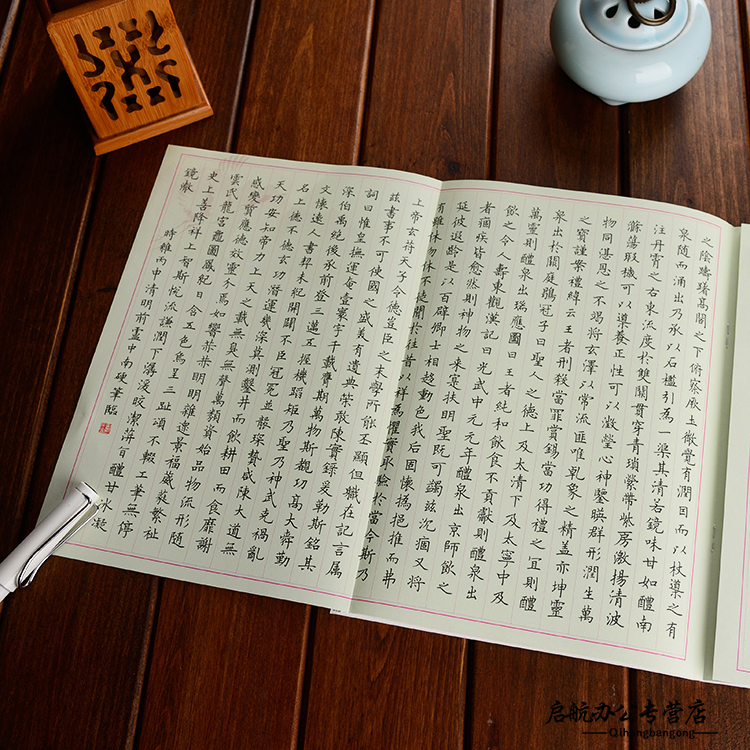 之陰躊躇髙閣之下俯察厥土微覺有潤因而以杖導之有
泉隨而涌出乃承以石檻引為一渠其清若鏡味甘如醴南
注丹霄之右東流度於雙闕貫穿青瑣縈帶紫房激揚清波
滌蕩瑕穢可以導養正性可以澂瑩心神鑒暎群形潤生萬
物同湛恩之不竭將玄澤以常流匪唯乾象之精盖亦坤靈
之寶謹案禮緯云王者刑殺當罪賞錫當功得禮之宜則醴
泉出於闕庭鶡冠子曰聖人之德上及太清下及太寧中及
萬靈則醴泉出瑞應圖曰王者純和飲食不貢獻則醴泉出
飲之令人壽東觀漢記曰光武中元元年醴泉出京師飲之
者痼疾皆愈然則神物之来寔扶明聖既可蠲兹沉痼又將
延彼遐齡是以百辟卿士相趨動色我后固懷撝挹推而弗
有雖休勿休不徒聞於往昔以祥為懼實取驗於當今斯乃
上帝玄符天子令德豈臣之末學所能丕顯但職在記言属
兹書事不可使國之盛美有遺典策敢陳實錄爰勒斯銘其
詞曰惟皇撫運奄壹寰宇千載膺期萬物斯覩功高大舜勤
深伯禹絶後承前登三邁五握機蹈矩乃聖乃神武克禍亂
文懷遠人書契未紀開闢不臣冠冕並襲琛贄咸陳大道無
名上德不德玄功潛運幾深莫測鑿井而飲耕田而食靡謝
天功安知帝力上天之載無臭無聲萬類資始品物流形隨
感變質應德效靈介焉如響赫赫明明雜遝景福葳蕤繁祉
雲氏龍宫龜圖鳳紀日含五色烏呈三趾頌不輟工筆無停
史上善降祥上智斯悦流謙潤下潺湲皎潔萍旨醴甘冰凝
鏡澈
時維丙申清明前靈中南硬筆臨
启航办公专营店
Qihangbangong